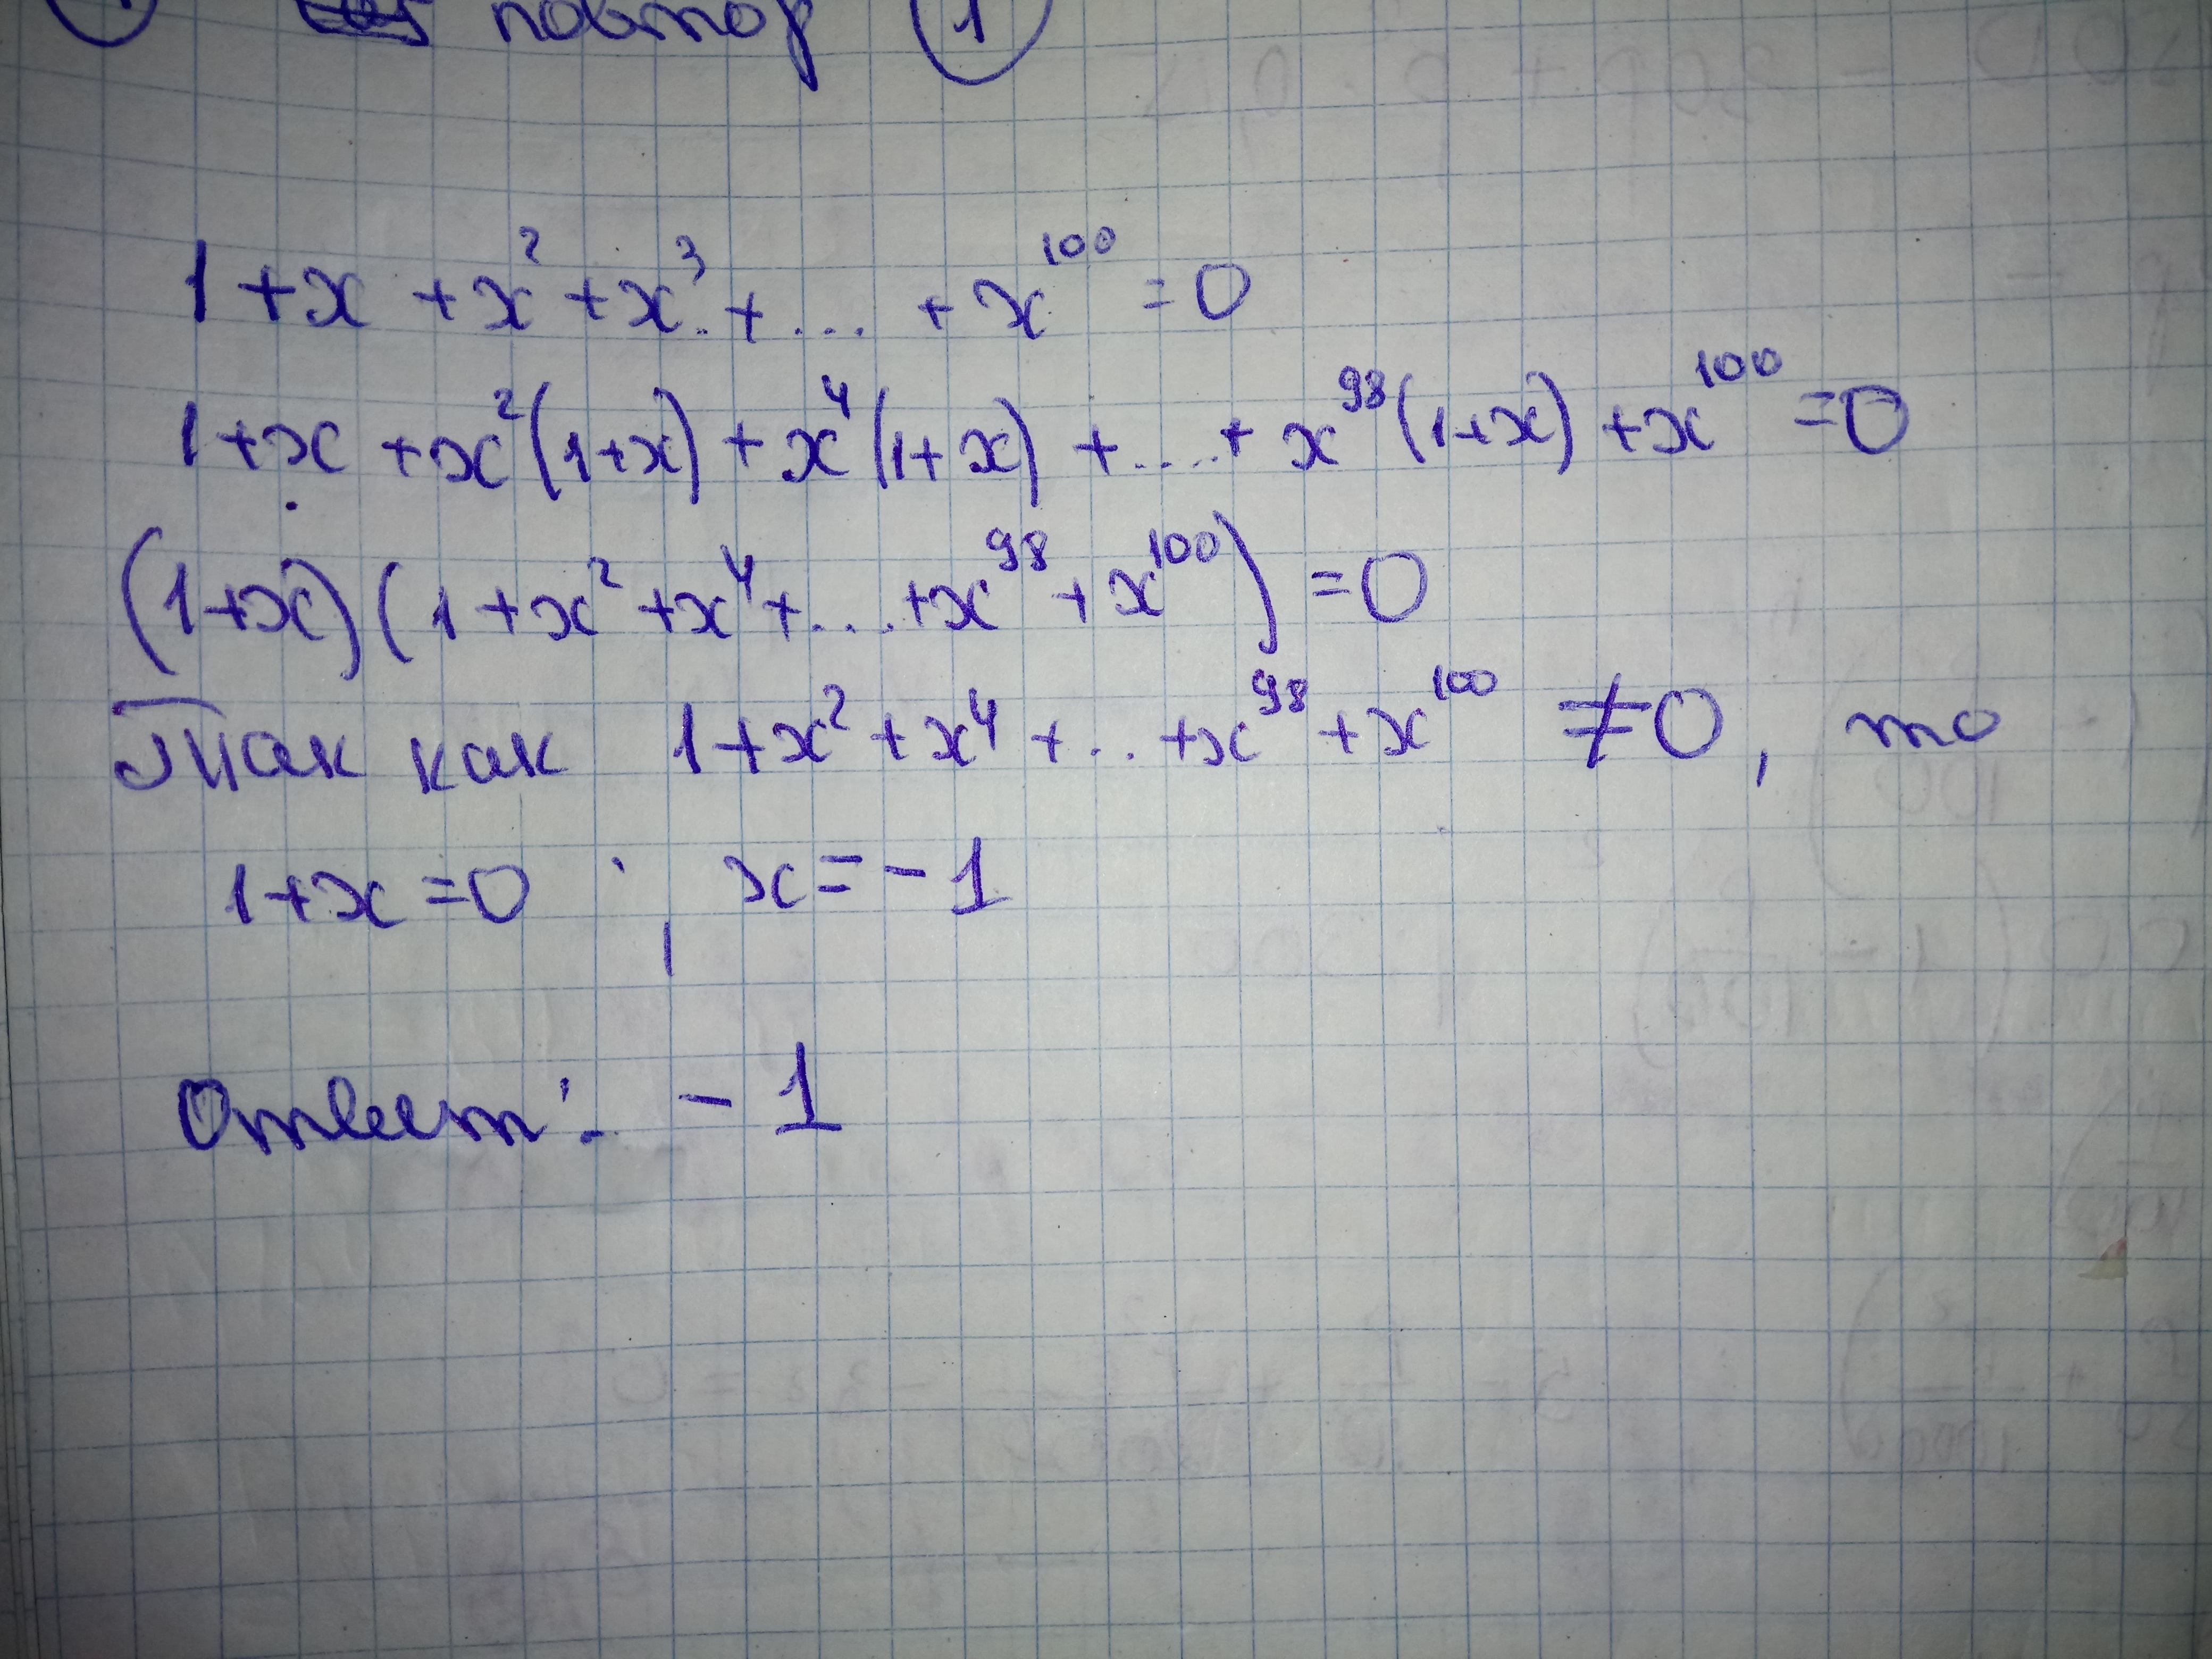 повтор 1
1+x+x²+x³+...+x¹⁰⁰=0
1+x+x²(1+x)+x⁴(1+x)+....+x⁹⁸(1+x)+x¹⁰⁰=0
(1+x)(1+x²+x⁴+....+x⁹⁸+x¹⁰⁰)=0
Так как 1+x²+x⁴+...+x⁹⁸+x¹⁰⁰≠0, то
1+x=0, x=-1
Ответ: -1